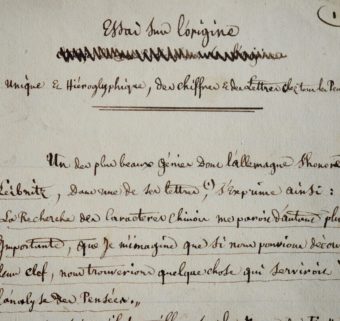 1
Essai sur l'origine
Unique & Hiéroglyphique, des chiffres & des Lettres chez tous les Peu
Un des plus beaux génies dont l'allemagne s'honore
Leibnitz, dans une de ses lettres, (1) s'exprime ainsi :
"La Recherche des Caracteres Chinois me paroit d'autant plus
Importante, que Je m'imagine que si nous pouvions décou
leur clef, nous trouverions quelque chose qui serviroit
l'analyse des Pensées."